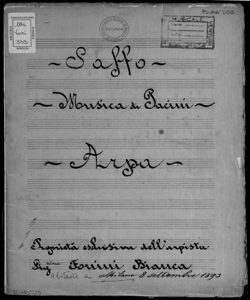 ~ Saffo ~
~ Musica di Pacini ~
~ Arpa ~
Proprietà esclusiva dell'arpista
Tonini Bianca
abitante a Milano 8 settembre 1893